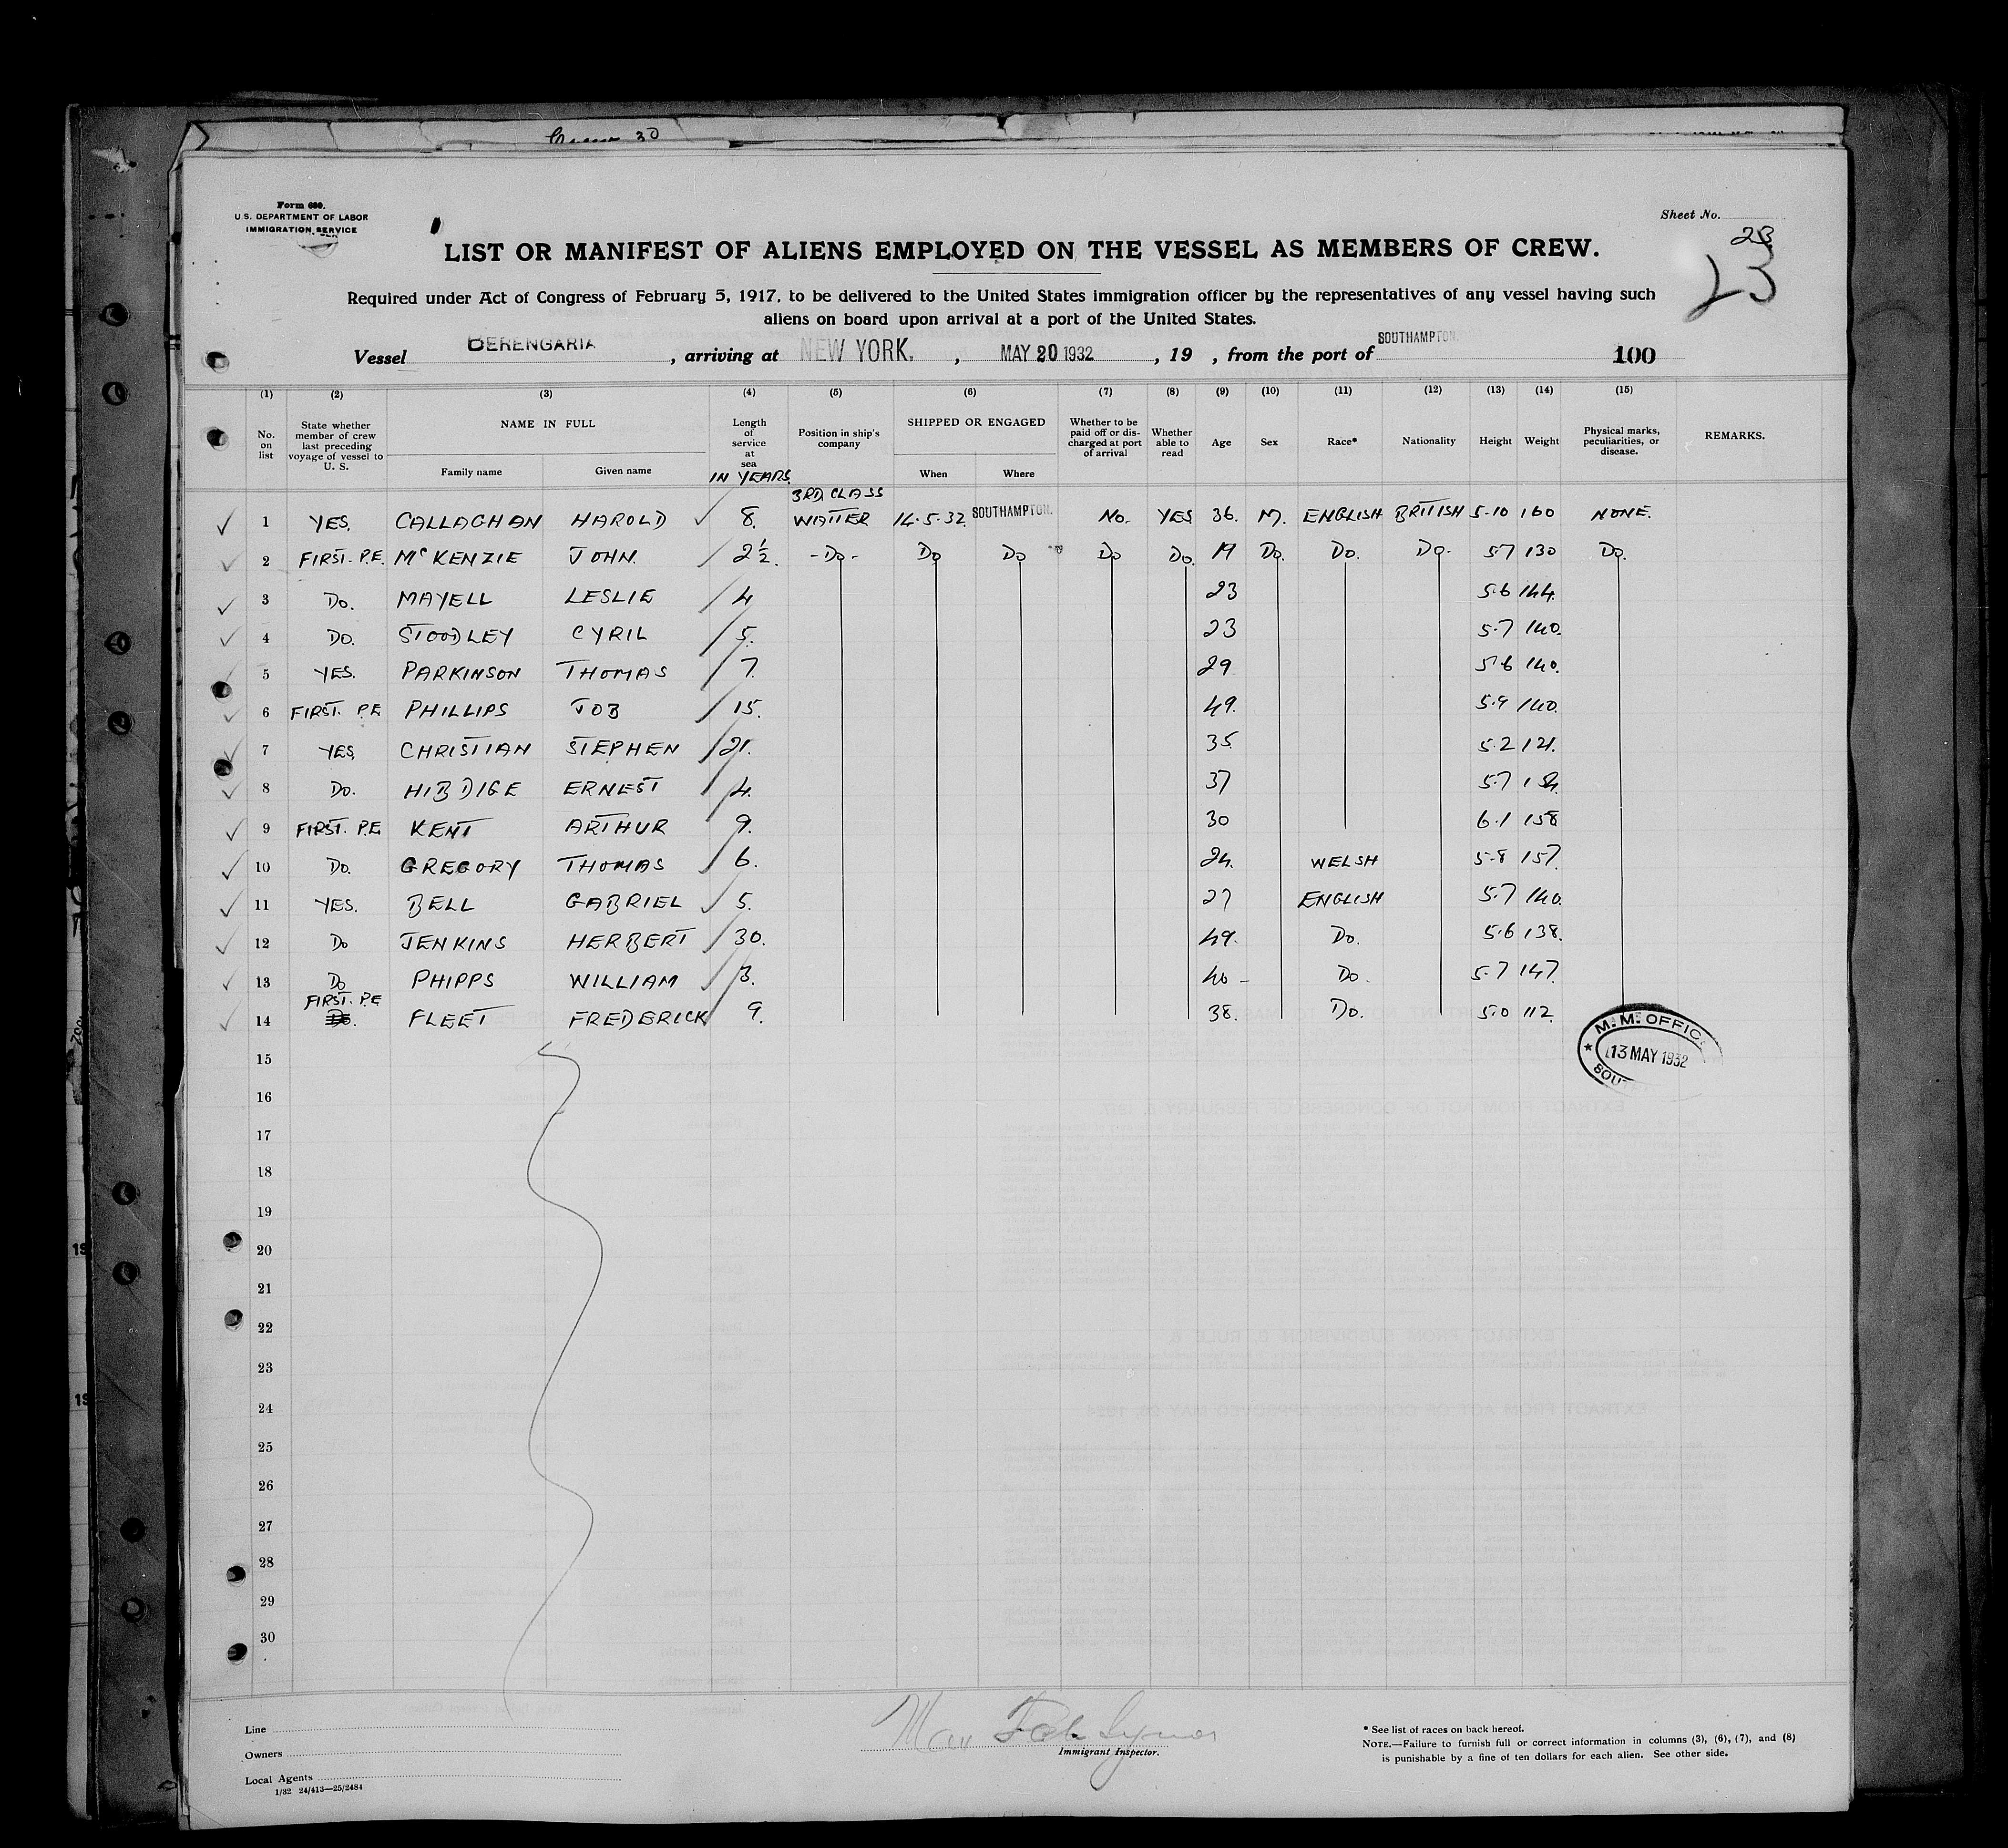 Crew 30
Form 680.
U.S. DEPARTMENT OF LABOR
IMMIGRATION SERVICE
Sheet No.
23
23
LIST OR MANIFEST OF ALIENS EMPLOYED ON THE VESSEL AS MEMBERS OF CREW.
Required under Act of Congress of February 5, 1917, to be delivered to the United States immigration officer by the representatives of any vessel having such
aliens on board upon arrival at a port of the United States.
Vessel BERENGARIA, arriving at NEW YORK., MAY 20 1932, 19 , from the port of SOUTHAMPTON. 100
(1) (2) (3) (4) (5) (6) (7) (8) (9) (10) (11) (12) (13) (14) (15)
No. on list State whether member of crew last preceding voyage of vessel to U. S. NAME IN FULL Family name Given name Length of service at sea IN YEARS. Position in ship's company SHIPPED OR ENGAGED When Where Whether to be paid off or discharged at port of arrival Whether able to read Age Sex Race* Nationality Height Weight Physical marks, peculiarities, or disease. REMARKS.
3RD. CLASS
1 YES. CALLAGHAN HAROLD 8. WAITER 14.5.32 SOUTHAMPTON. No. YES 36. M. ENGLISH BRITISH 5-10 160 NONE.
2 FIRST. P.E. McKENZIE JOHN. 2½. -Do- Do Do Do Do. 19 Do. Do. Do. 5-7 130 Do.
3 Do. MAYELL LESLIE 4 23 5.6 144.
4 Do. STOODLEY CYRIL 5. 23 5.7 140.
5 YES. PARKINSON THOMAS 7. 29 5.6 140.
6 FIRST. P.E PHILLIPS JOB 15. 49. 5.9 140.
7 YES. CHRISTIAN STEPHEN 21. 35. 5.2 121.
8 Do. HIBDIGE ERNEST 4. 37 5.7 134.
9 FIRST. P.E KENT ARTHUR 9. 30 6.1 158
10 Do. GREGORY THOMAS 6. 24. WELSH 5-8 157.
11 YES. BELL GABRIEL 5. 27 ENGLISH 5.7 140.
12 Do JENKINS HERBERT 30. 49. Do. 5.6 138.
13 Do PHIPPS WILLIAM 3. 40 - Do. 5.7 147.
FIRST. P.E
14 Do. FLEET FREDERICK 9. 38. Do. 5.0 112.
M. M. OFFIC
13 MAY 1932
SOU
15
16
17
18
19
20
21
22
23
24
25
26
27
28
29
30
Line
Owners
Local Agents
1/32 24/413—25/2484
Immigrant Inspector.
* See list of races on back hereof.
NOTE.—Failure to furnish full or correct information in columns (3), (6), (7), and (8)
is punishable by a fine of ten dollars for each alien. See other side.